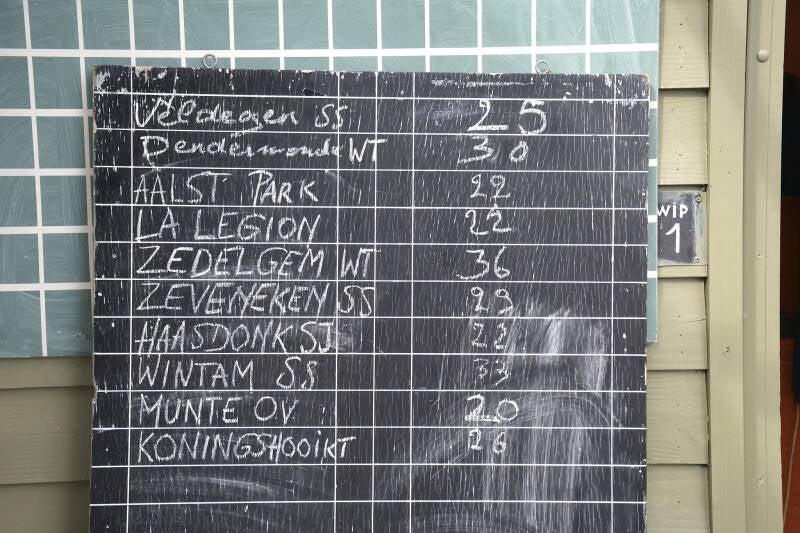 Veldegem SS 25
Dendermonde WT 30
AALST PARK 22
LA LEGION 22
ZEDELGEM WT 36
ZEVENEKEN SS 29
HAASDONK SJ 22
WINTAM SS 33
MUNTE OV 20
KONINGSHOOIKT 26
WIP
1